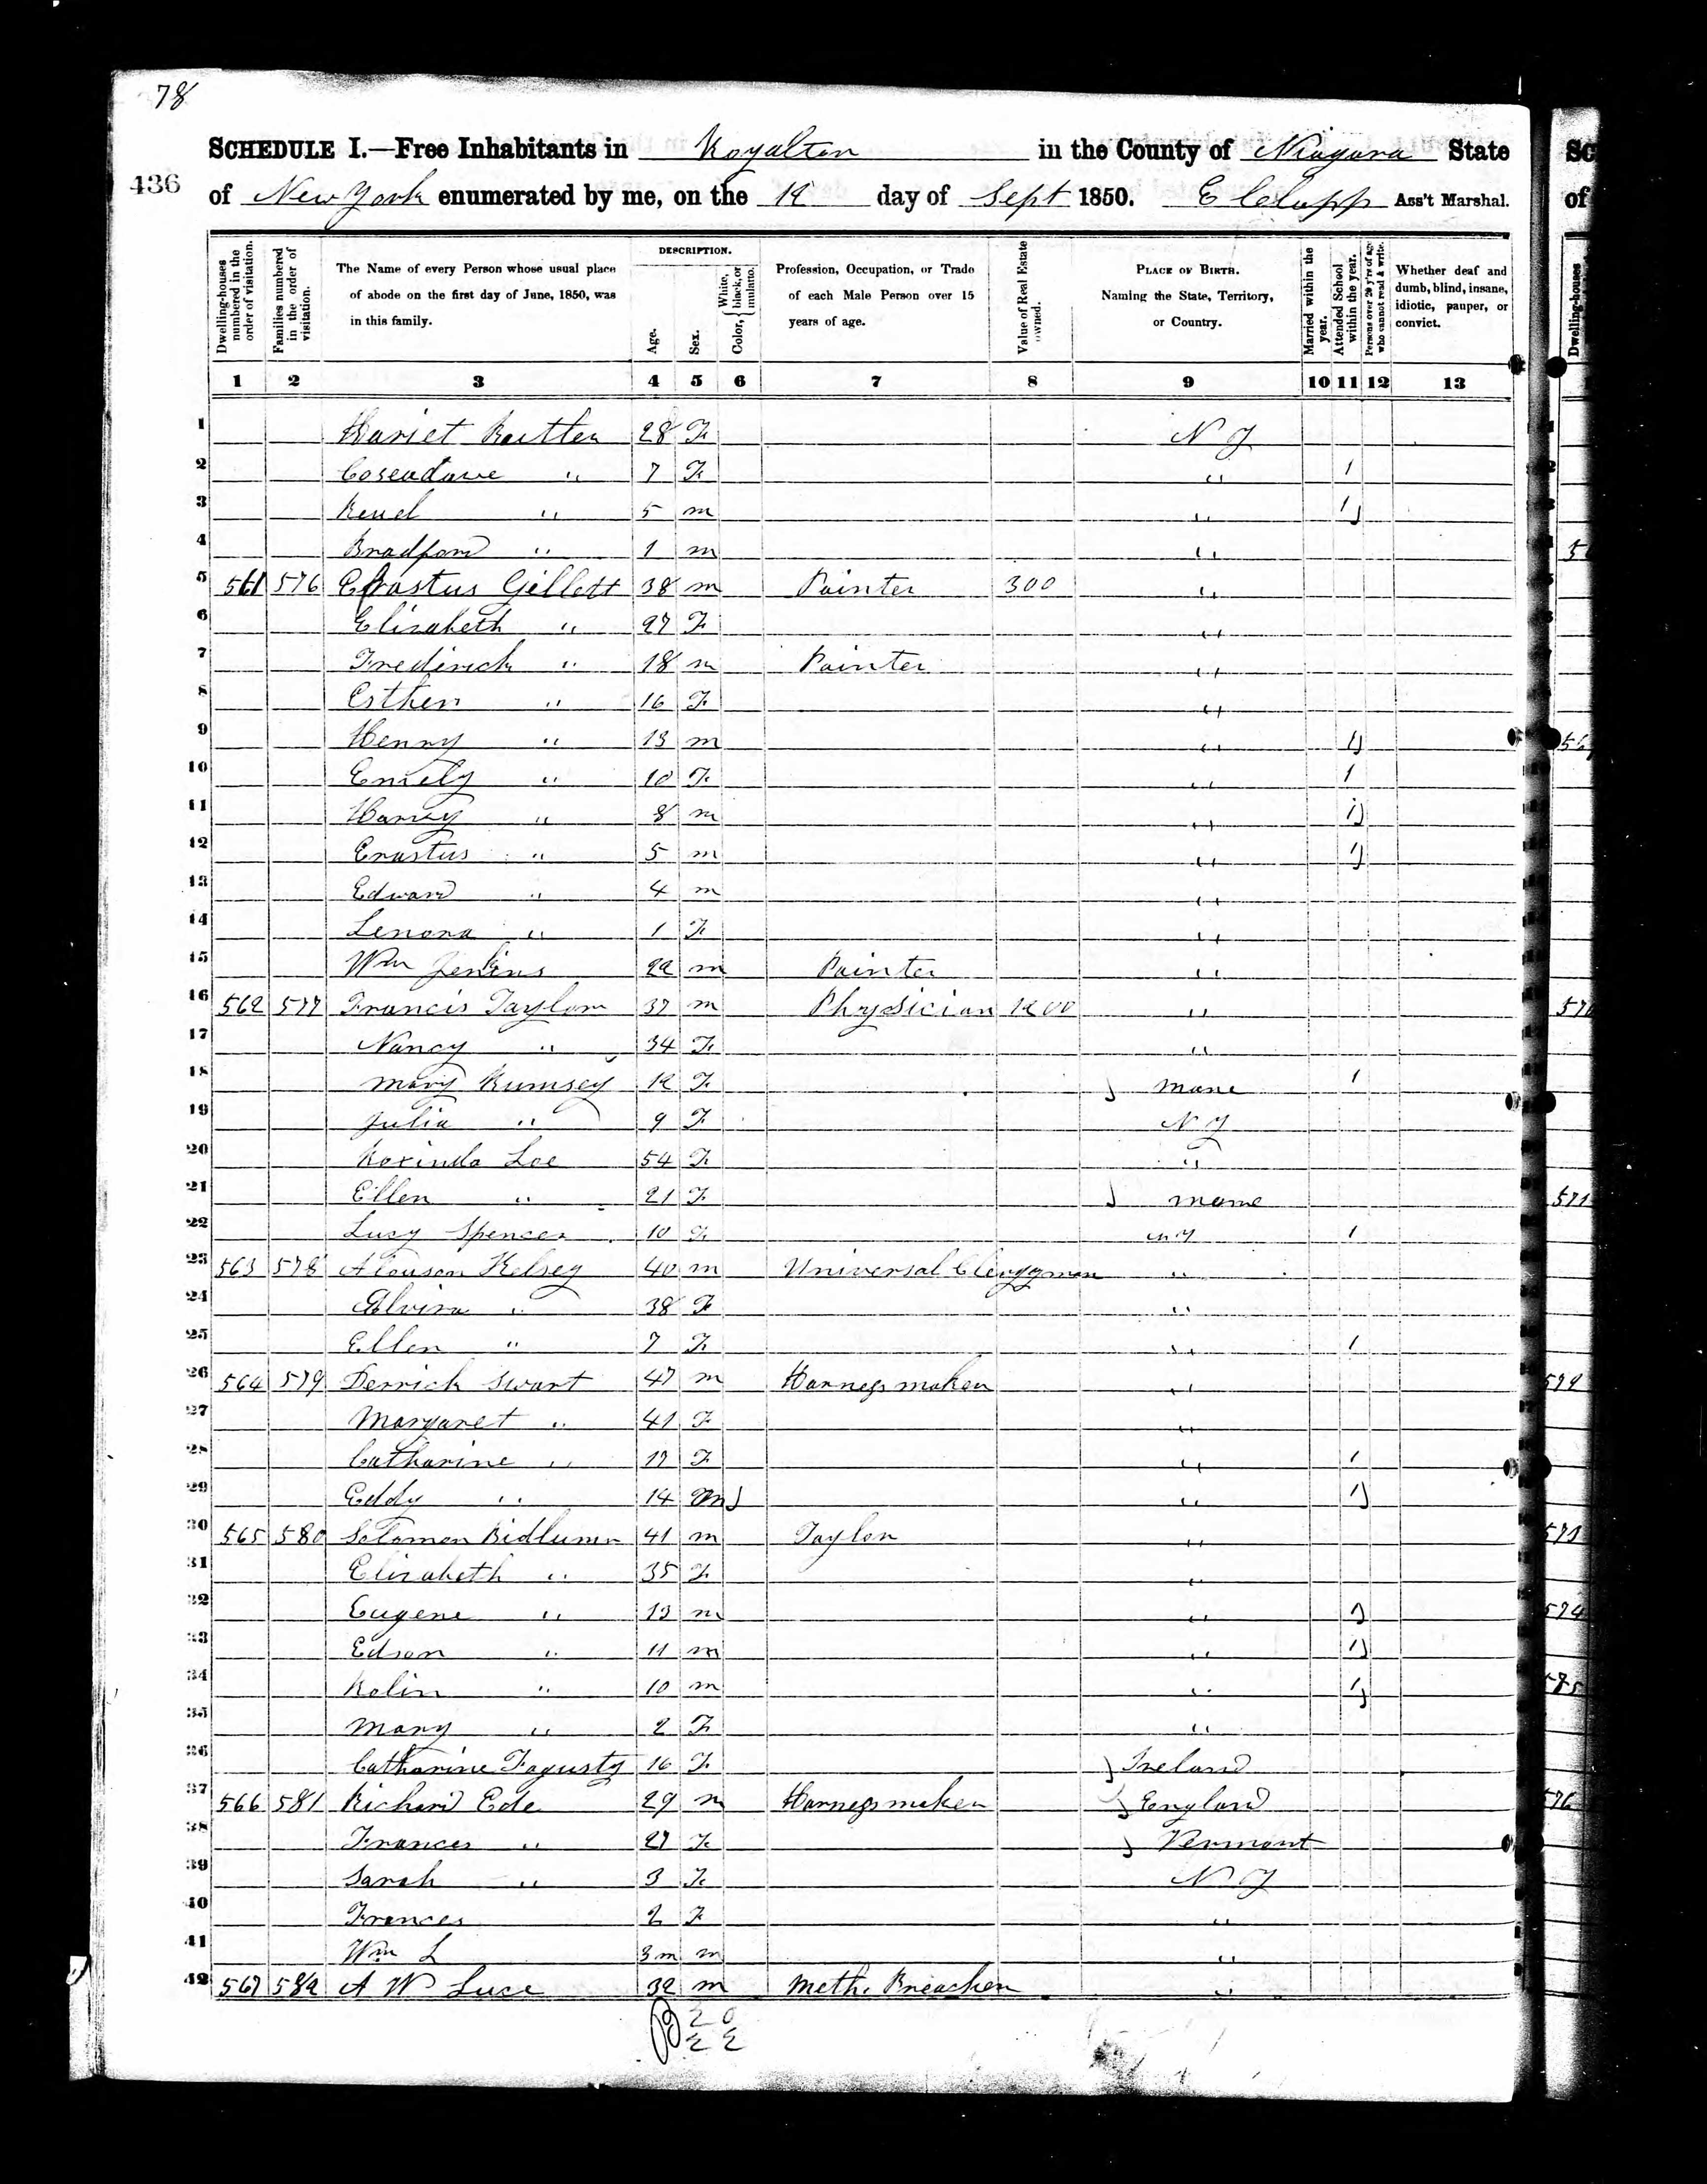 78
SCHEDULE I.—Free Inhabitants in Royalton in the County of Niagara State
436
of New York enumerated by me, on the 12 day of Sept 1850. Ass't Marshal.
Dwelling-houses numbered in the order of visitation.
Families numbered in the order of visitation.
The Name of every Person whose usual place of abode on the first day of June, 1850, was in this family.
DESCRIPTION.
Age.
Sex.
Color, { White, black, or mulatto.
Profession, Occupation, or Trade of each Male Person over 15 years of age.
Value of Real Estate owned.
PLACE OF BIRTH. Naming the State, Territory, or Country.
Married within the year.
Attended School within the year.
Persons over 20 y'rs of age who cannot read & write.
Whether deaf and dumb, blind, insane, idiotic, pauper, or convict.
1 2 3 4 5 6 7 8 9 10 11 12 13
1 Hariet 28 F N Y
2 " 7 F " 1
3 Reuel " 5 m " 1
4 Bradford " 1 m "
5 561 576 Erastus Gillett 38 m Painter 300 "
6 Elizabeth " 27 F "
7 Frederick " 18 m Painter "
8 Esther " 16 F "
9 Henry " 13 m " 1
10 Emely " 10 F " 1
11 Harvey " 8 m " 1
12 Erastus " 5 m " 1
13 Edward " 4 m "
14 Lenora " 1 F "
15 Wm Jenkins 22 m Painter "
16 562 577 Francis Taylor 37 m Physician 1200 "
17 Nancy " 34 F "
18 Mary Rumsey 12 F Mane 1
19 Julia " 9 F N Y
20 Loe 54 F "
21 Ellen " 21 F Mane
22 Lucy Spencer 10 F N Y 1
23 563 578 Alonson Kelsey 40 m Universal Clergyman "
24 Elvira " 38 F "
25 Ellen " 7 F " 1
26 564 579 Derrick Swart 47 m Harness maker "
27 Margaret " 41 F "
28 Catharine " 17 F " 1
29 Eddy " 14 m " 1
30 565 580 Solomon 41 m Taylor "
31 Elizabeth " 35 F "
32 Eugene " 13 m " 1
33 Edson " 11 m " 1
34 Rolin " 10 m " 1
35 Mary " 2 F "
36 Catharine Fagusty 16 F Ireland
37 566 581 Richard Ede 29 m Harness maker England
38 Frances " 27 F Vermont
39 Sarah " 3 F N Y
40 Frances 2 F "
41 Wm L 3m m "
42 567 582 A W Luce 32 m Meth. Preacher "